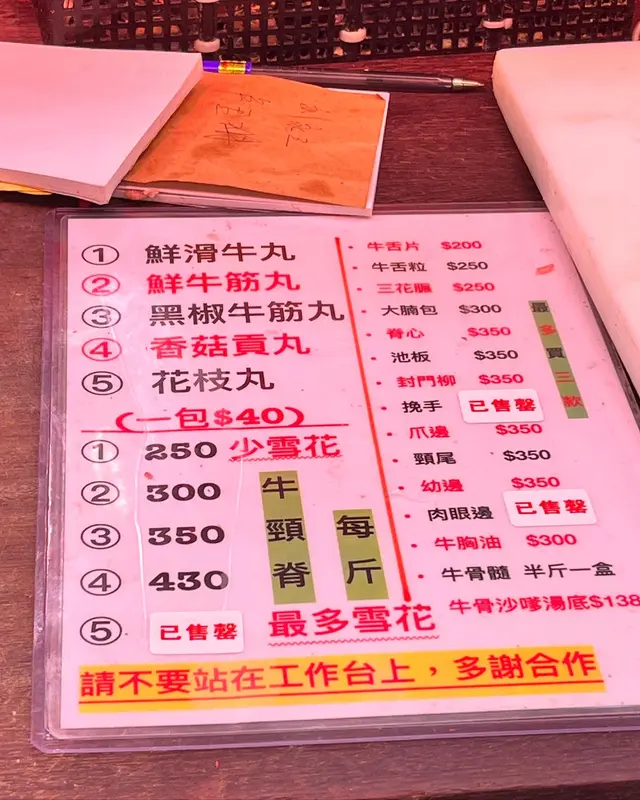 ① 鮮滑牛丸
② 鮮牛筋丸
③ 黑椒牛筋丸
④ 香菇貢丸
⑤ 花枝丸
(一包$40)
① 250 少雪花
② 300
③ 350
④ 430
⑤ 已售罄
牛頸脊
每斤
最多雪花
• 牛舌片 $200
• 牛舌粒 $250
• 三花腱 $250
• 大腩包 $300
• 脊心 $350
• 池板 $350
• 封門柳 $350
• 挽手 已售罄
• 爪邊 $350
• 頸尾 $350
• 幼邊 $350
• 肉眼邊 已售罄
• 牛胸油 $300
• 牛骨髓 半斤一盒
牛骨沙嗲湯底$138
最多買三款
請不要站在工作台上，多謝合作